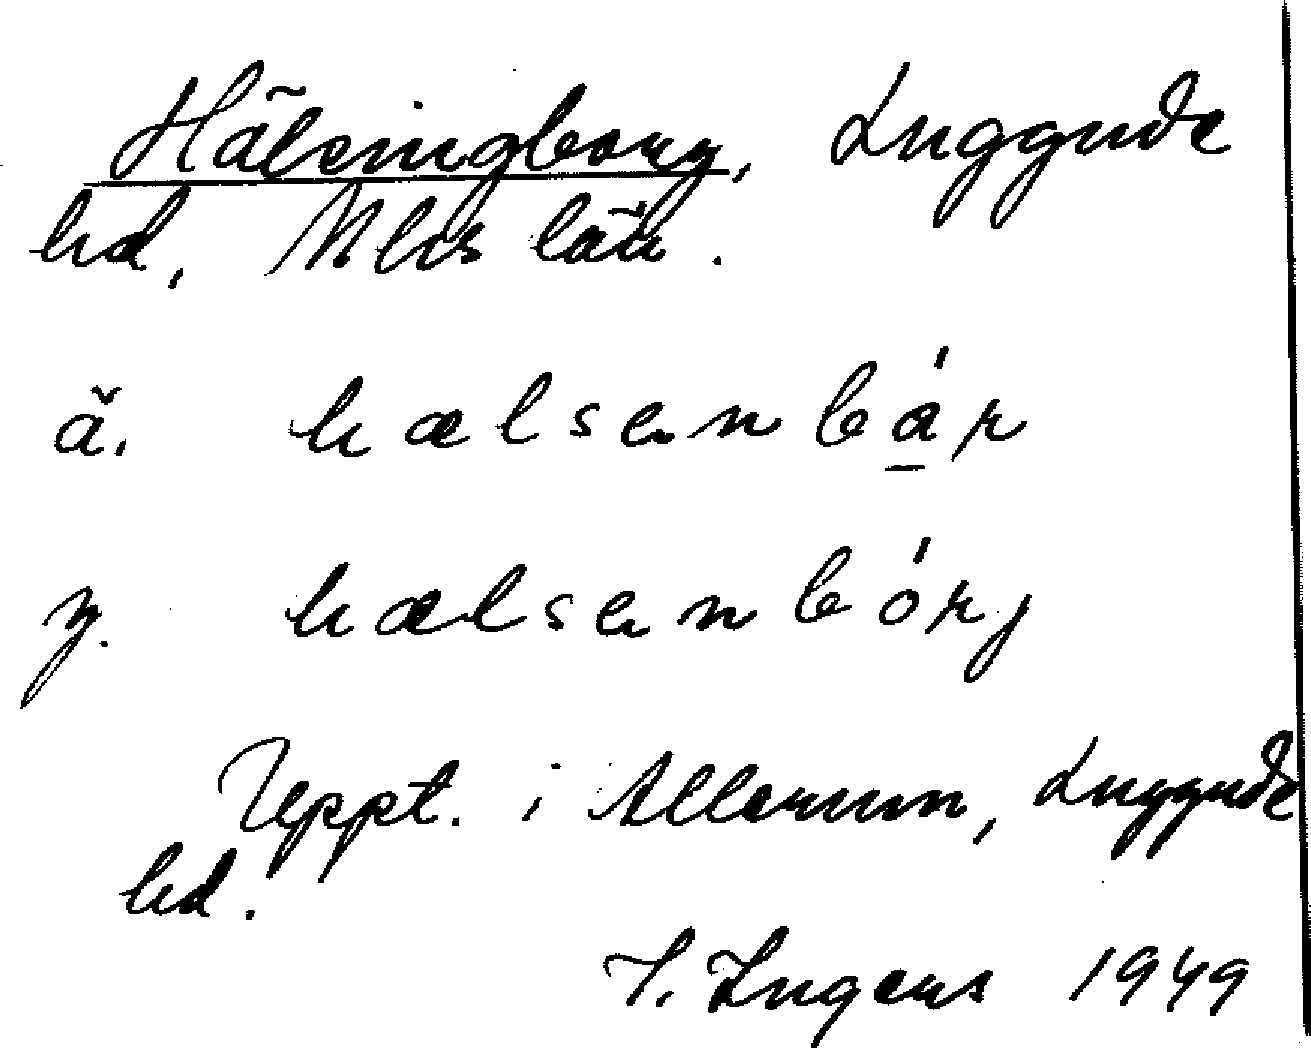 Hälsingborg, Luggude
hd, Mhs län.
ä. hælsenbá̱r
y. hælsenbórj
Uppt. i Allerum, Luggude
hd.
I. Ingers 1949